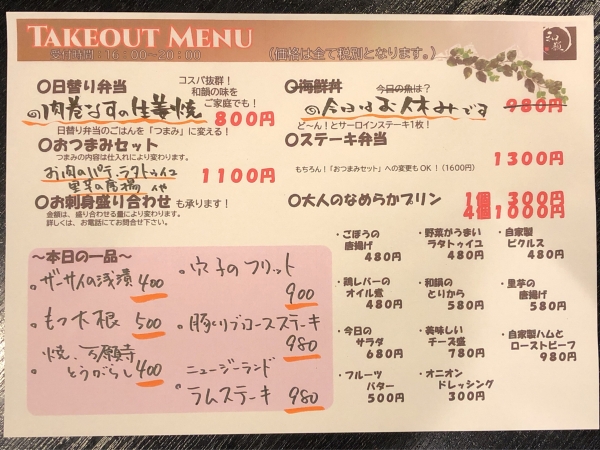 TAKEOUT MENU
受付時間：16：30～20：00
（価格は全て税別となります。）
和韻
○日替り弁当
コスパ抜群！
和韻の味を
ご家庭でも！
◎肉巻なすの生姜焼
800円
日替り弁当のごはんを「つまみ」に変える！
○おつまみセット
つまみの内容は仕入れにより変わります。
お肉のパテ、ラタトゥイユ
里芋の唐揚 etc
1100円
○お刺身盛り合わせ も承ります！
金額は、盛り合わせる量により変わります。
詳しくは、お電話にてお問合せ下さい。
○海鮮丼
今日の魚は？
◎今日はお休みです
980円
ど～ん！とサーロインステーキ1枚！
○ステーキ弁当
1300円
もちろん！「おつまみセット」への変更もOK！（1600円）
○大人のなめらかプリン
1個 300円
4個1000円
～本日の一品～
・ザーサイの浅漬 400
・もつ大根 500
・焼、万願寺
とうがらし 400
・穴子のフリット
900
・豚リブロースステーキ
980
・ニュージーランド
ラムステーキ 980
・ごぼうの
唐揚げ
480円
・野菜がうまい
ラタトゥイユ
480円
・自家製
ピクルス
480円
・鶏レバーの
オイル煮
480円
・和韻の
とりから
580円
・里芋の
唐揚げ
580円
・今日の
サラダ
680円
・美味しい
チーズ盛
780円
・自家製ハムと
ローストビーフ
980円
・フルーツ
バター
500円
・オニオン
ドレッシング
300円